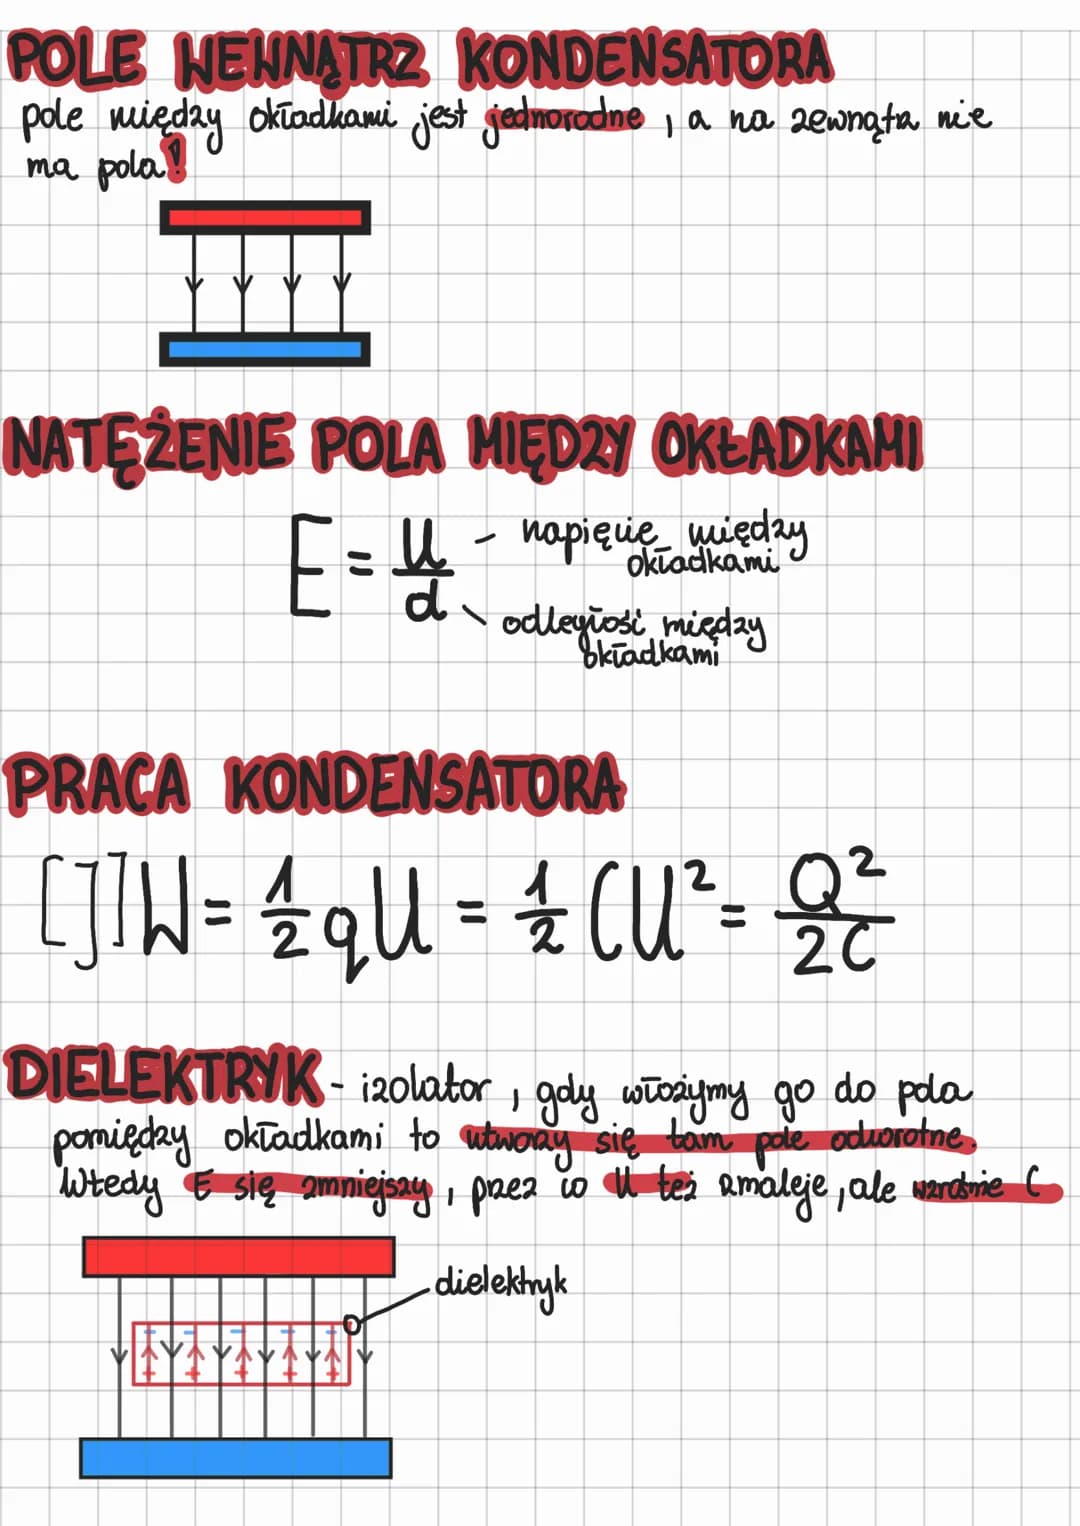 POLE WEWNĄTRZ KONDENSATORA
pole między okładkami jest jednorodne, a na zewnątrz nie
ma pola!
NATĘŻENIE POLA MIĘDZY OKŁADKAMI
E = U/d
- napięcie między
okładkami
\ odległość między
okładkami
PRACA KONDENSATORA
[J] W = 1/2 qU = 1/2 CU² = Q²/2C
DIELEKTRYK - izolator, gdy włożymy go do pola
pomiędzy okładkami to utworzy się tam pole odwrotne.
Wtedy E się zmniejszy, przez co U też zmaleje, ale wzrośnie C
dielektryk
- - - - -
+ + + + +